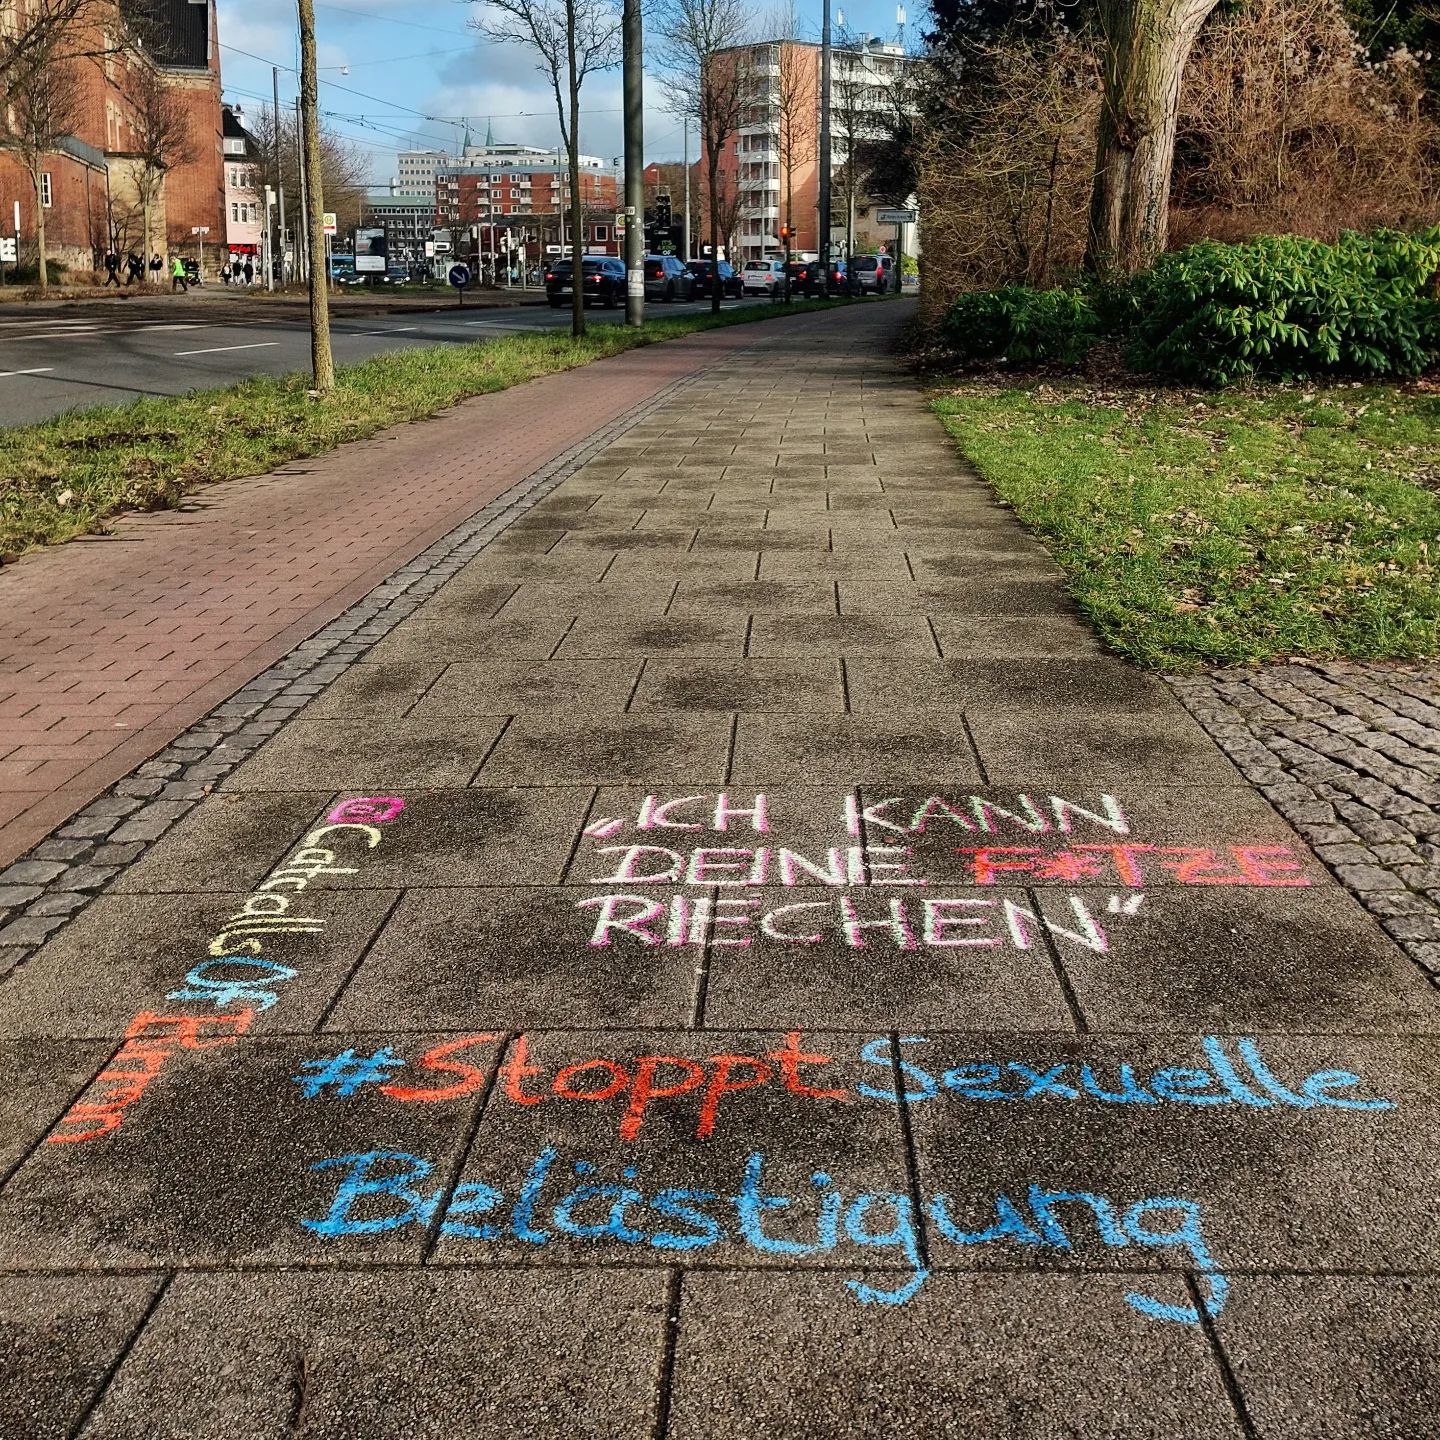 „ICH KANN
DEINE F*TZE
RIECHEN“
CatcallsOFBremen
#StopptSexuelle
Belästigung